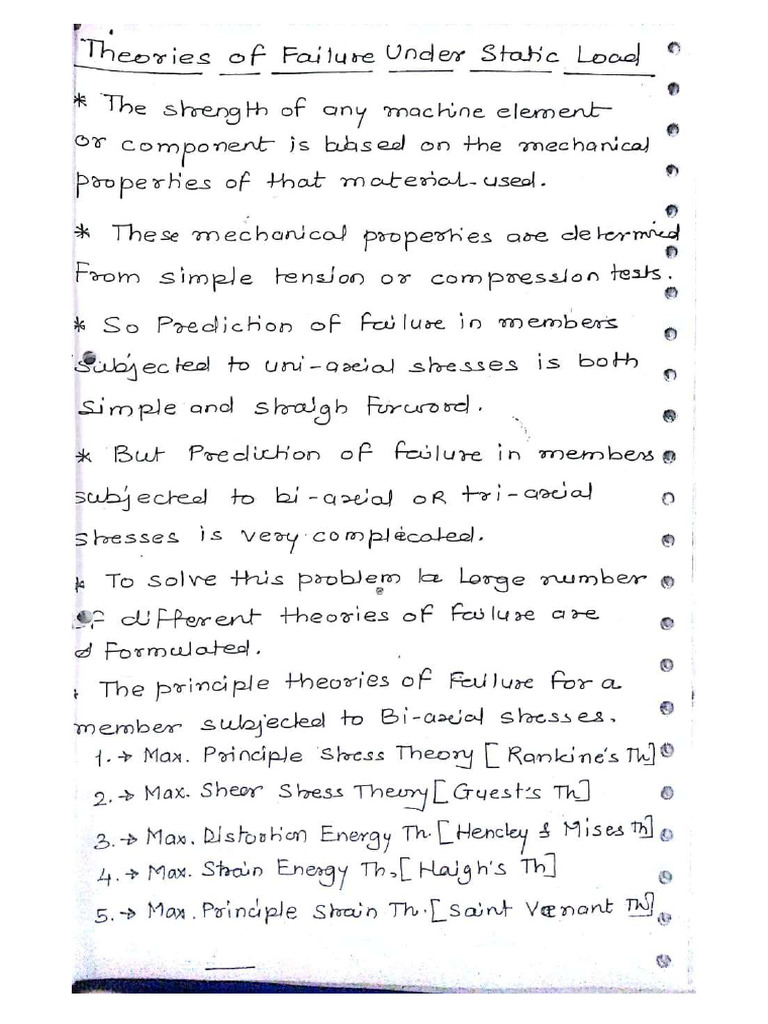 Theories of Failure Under Static Load
* The strength of any machine element
or component is based on the mechanical
properties of that material-used.
* These mechanical properties are determined
From simple tension or compression tests.
* So Prediction of failure in members
subjected to uni-axial stresses is both
simple and straigh forword.
* But Prediction of failure in members
subjected to bi-axial OR tri-axial
stresses is very complecated.
* To solve this problem a Large number
of different theories of failure are
Formulated.
* The principle theories of Failure for a
member subjected to Bi-axial stresses.
1. → Max. Principle Stress Theory [ Rankine's Th]
2. → Max. Sheer Stress Theory [ Guest's Th]
3. → Max. Distortion Energy Th. [ Hencley & Mises Th]
4. → Max. Strain Energy Th, [ Haigh's Th]
5. → Max. Principle Strain Th. [ Saint Venant Th]